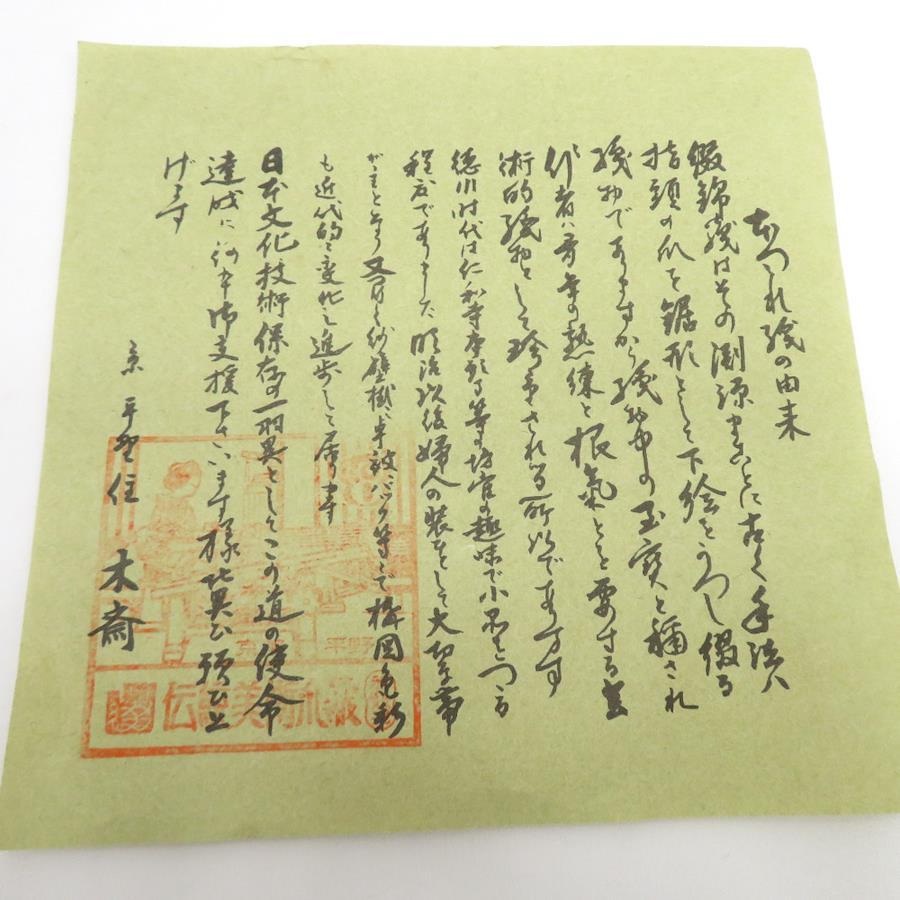 つゞれ織の由来
綴錦織はその淵源まことに古く手法は
指頭の爪を鋸形として下絵をうつし綴る
織物でありますから織物中の至宝と稱され
作者は多年の熟練と根氣とを要する
術的織物として珍重される所以であります
徳川時代は仁和寺本願寺等の坊官の趣味で小品をつくる
程度でありました 明治以後婦人の装として大切な帯
がまとなり 又 壁掛 バック等として構図色彩
も近代的に変化し進歩して居ります
日本文化技術保存の一羽翼としてこの道の使命
達成に何卒御支援下さいます様 願ひ上
げます
京 平野住 木斎
平野
伝 美術